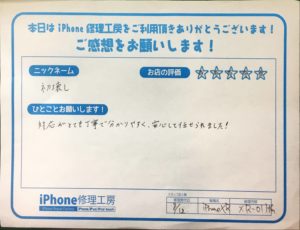 本日は iPhone 修理工房をご利用頂きありがとうございます!
ご感想をお願いします!
ニックネーム
お店の評価
ひとことお願いします!
対応がとても丁寧で分かりやすく、安心して任せられました!
iPhone修理工房
iPhoneXR